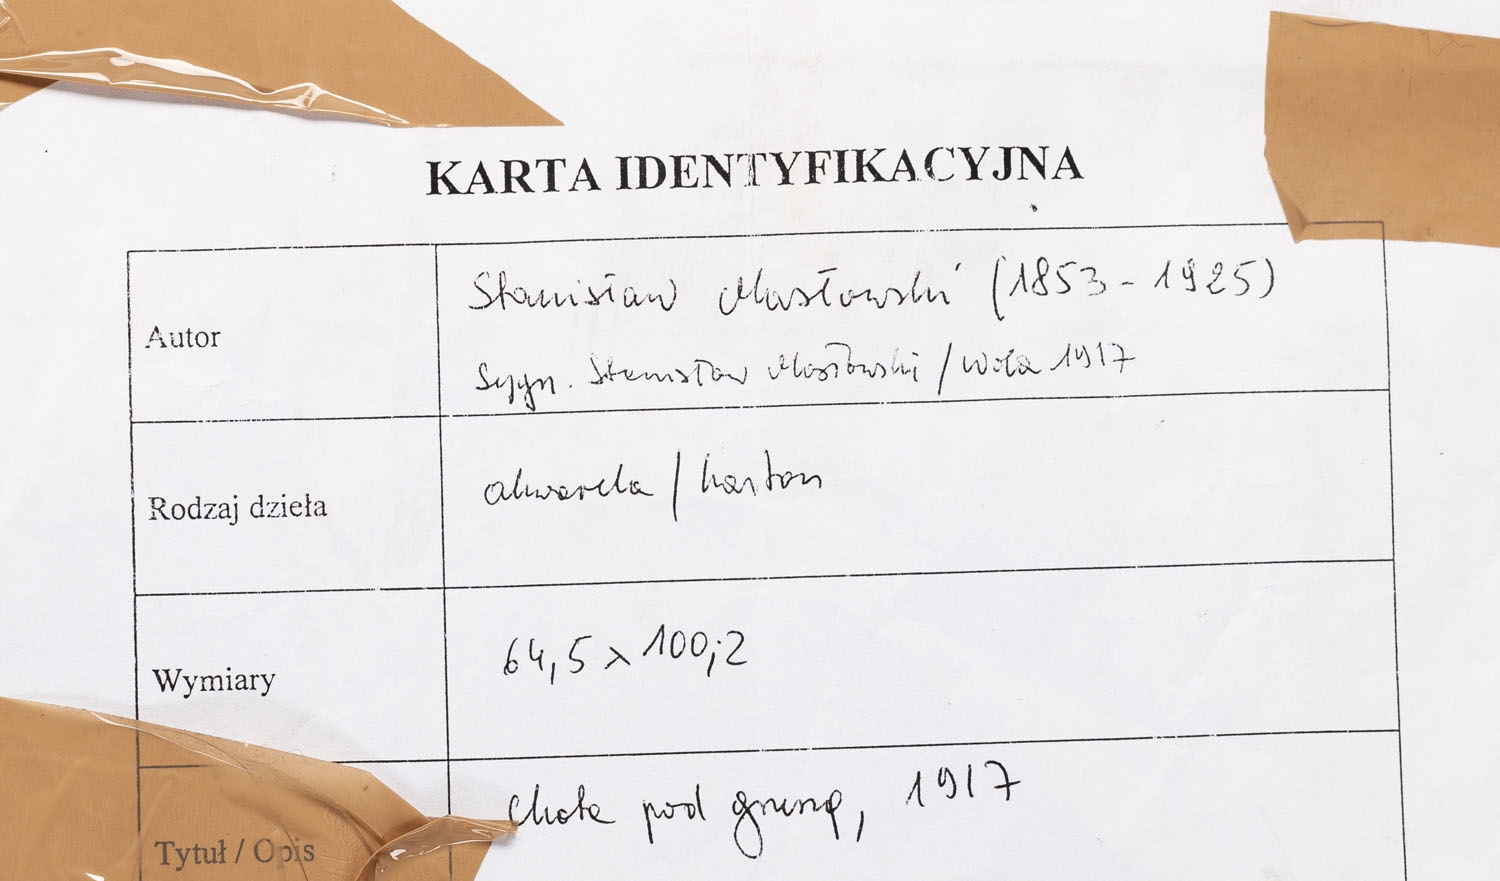 KARTA IDENTYFIKACYJNA
Autor
Stanisław Masłowski (1853 - 1925)
Sygn. Stanisław Masłowski / Wola 1917
Rodzaj dzieła
akwarela / karton
Wymiary
64,5 x 100,2
Tytuł / Opis
Chata pod gruszą, 1917